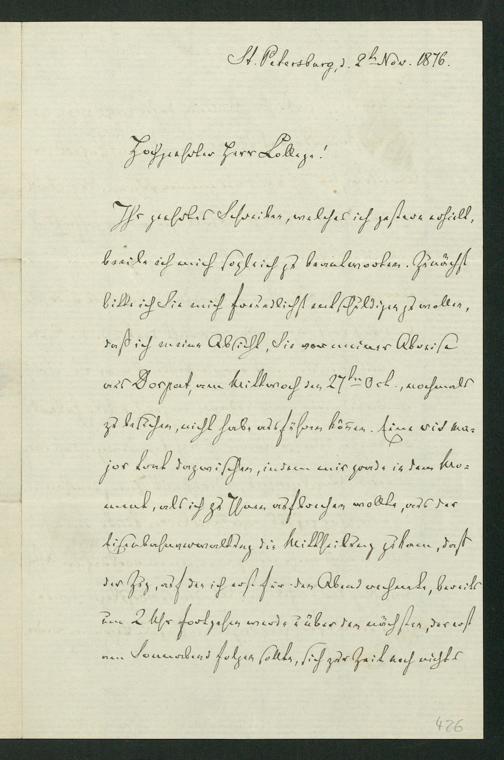 St. Petersburg, d. 2ten Nov. 1876.
Hochgeehrter Herr College!
Ihr geehrtes Schreiben, welches ich gestern erhielt,
beeile ich mich sogleich zu beantworten. Zunächst
bitte ich Sie mich freundlichst entschuldigen zu wollen,
daß ich meine Absicht, Sie vor meiner Abreise
aus Dorpat, am Mittwoch den 27ten Oct., nochmals
zu besuchen, nicht habe ausführen können. Eine vis ma-
jor trat dazwischen, indem mir grade in dem Mo-
ment, als ich zu Ihnen aufbrechen wollte, aus der
Eisenbahnverwaltung die Mittheilung zukam, daß
der Zug, auf den ich erst für den Abend rechnete, bereits
um 2 Uhr fortgehen werde u über den nächsten, der erst
am Sonnabend folgen sollte, sich zur Zeit noch nichts
426